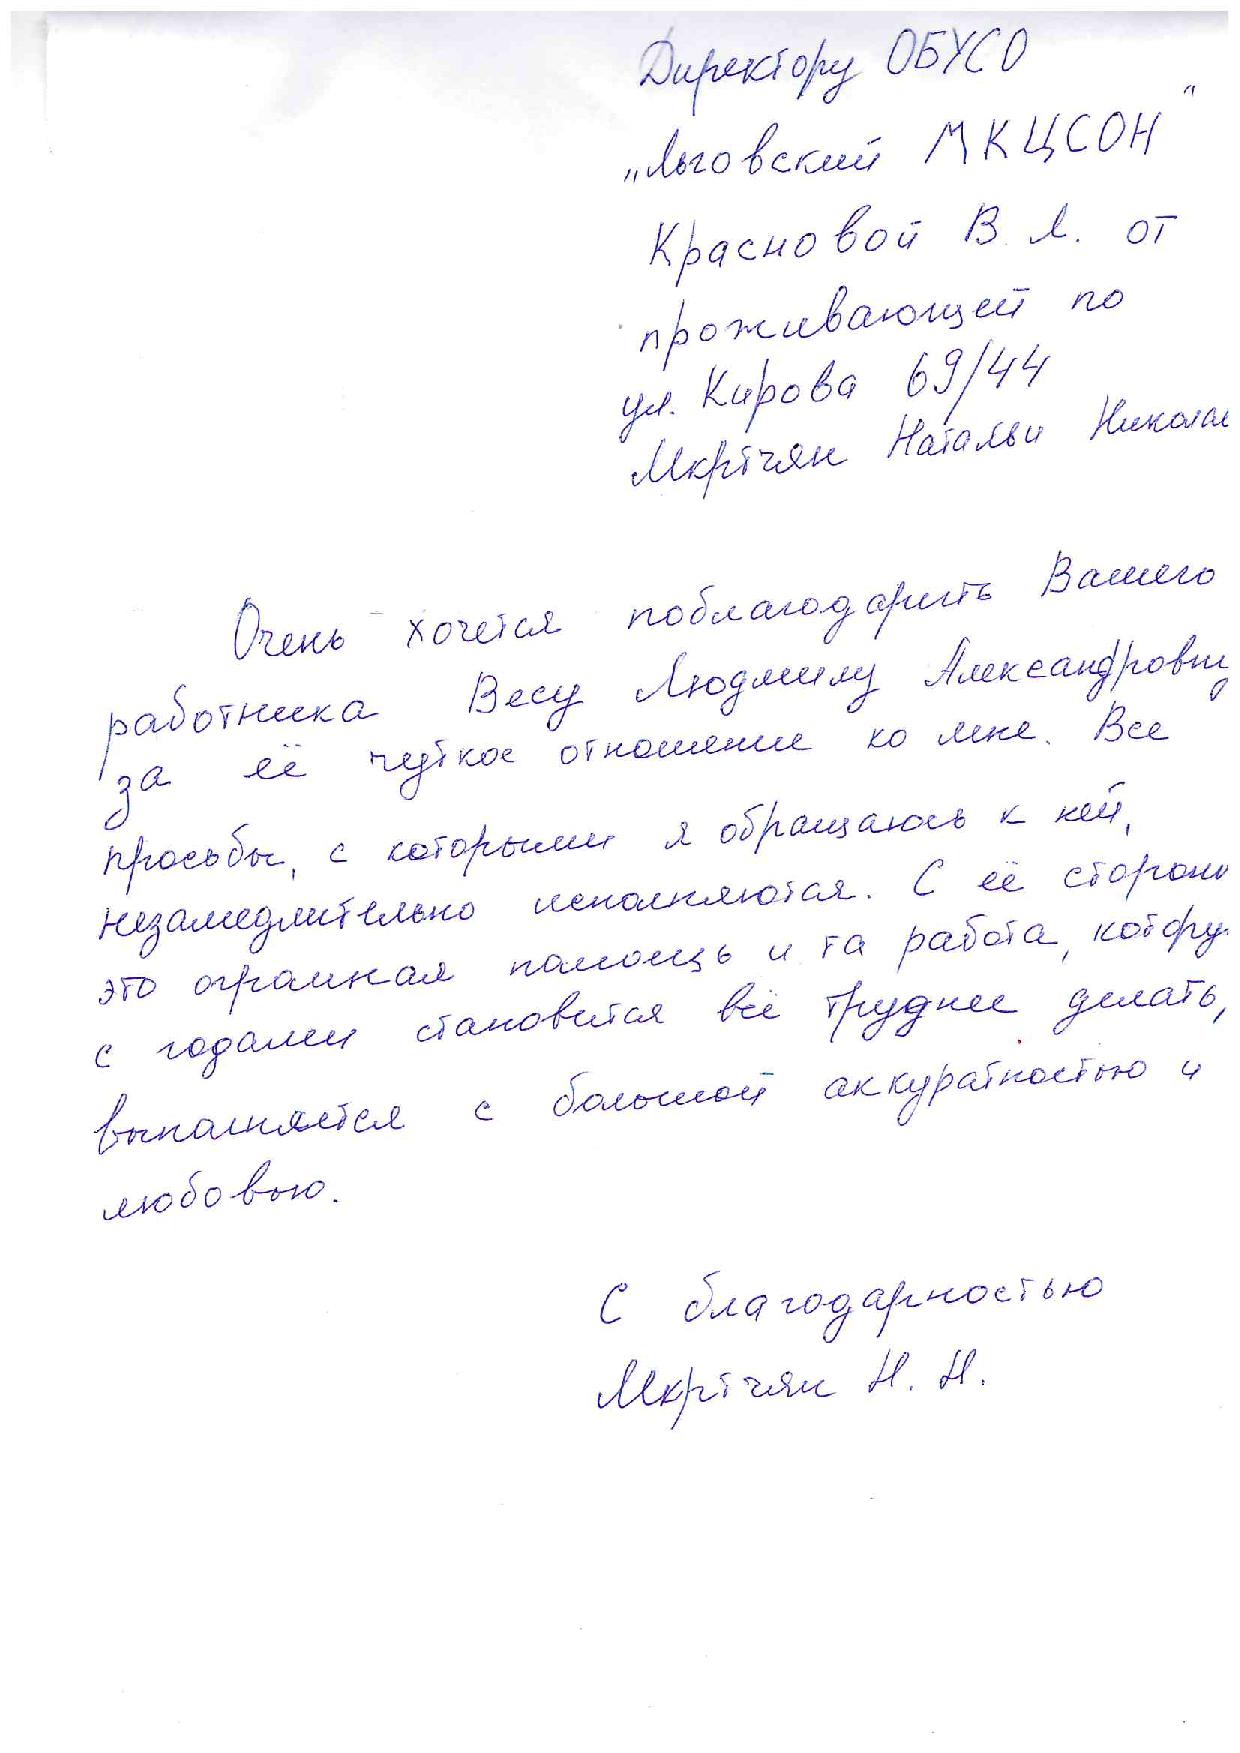 Директору ОБУСО
„Льговский МКЦСОН"
Красновой В. Л. от
проживающей по
ул. Кирова 69/44
Мкртчян Натальи Никола
Очень хочется поблагодарить Вашего
работника Весу Людмилу Александровну
за её чуткое отношение ко мне. Все
просьбы, с которыми я обращаюсь к ней,
незамедлительно исполняются. С её стороны
это огромная помощь и та работа, котору
с годами становится всё труднее делать,
выполняется с большой аккуратностью и
любовью.
С благодарностью
Мкртчян Н. Н.